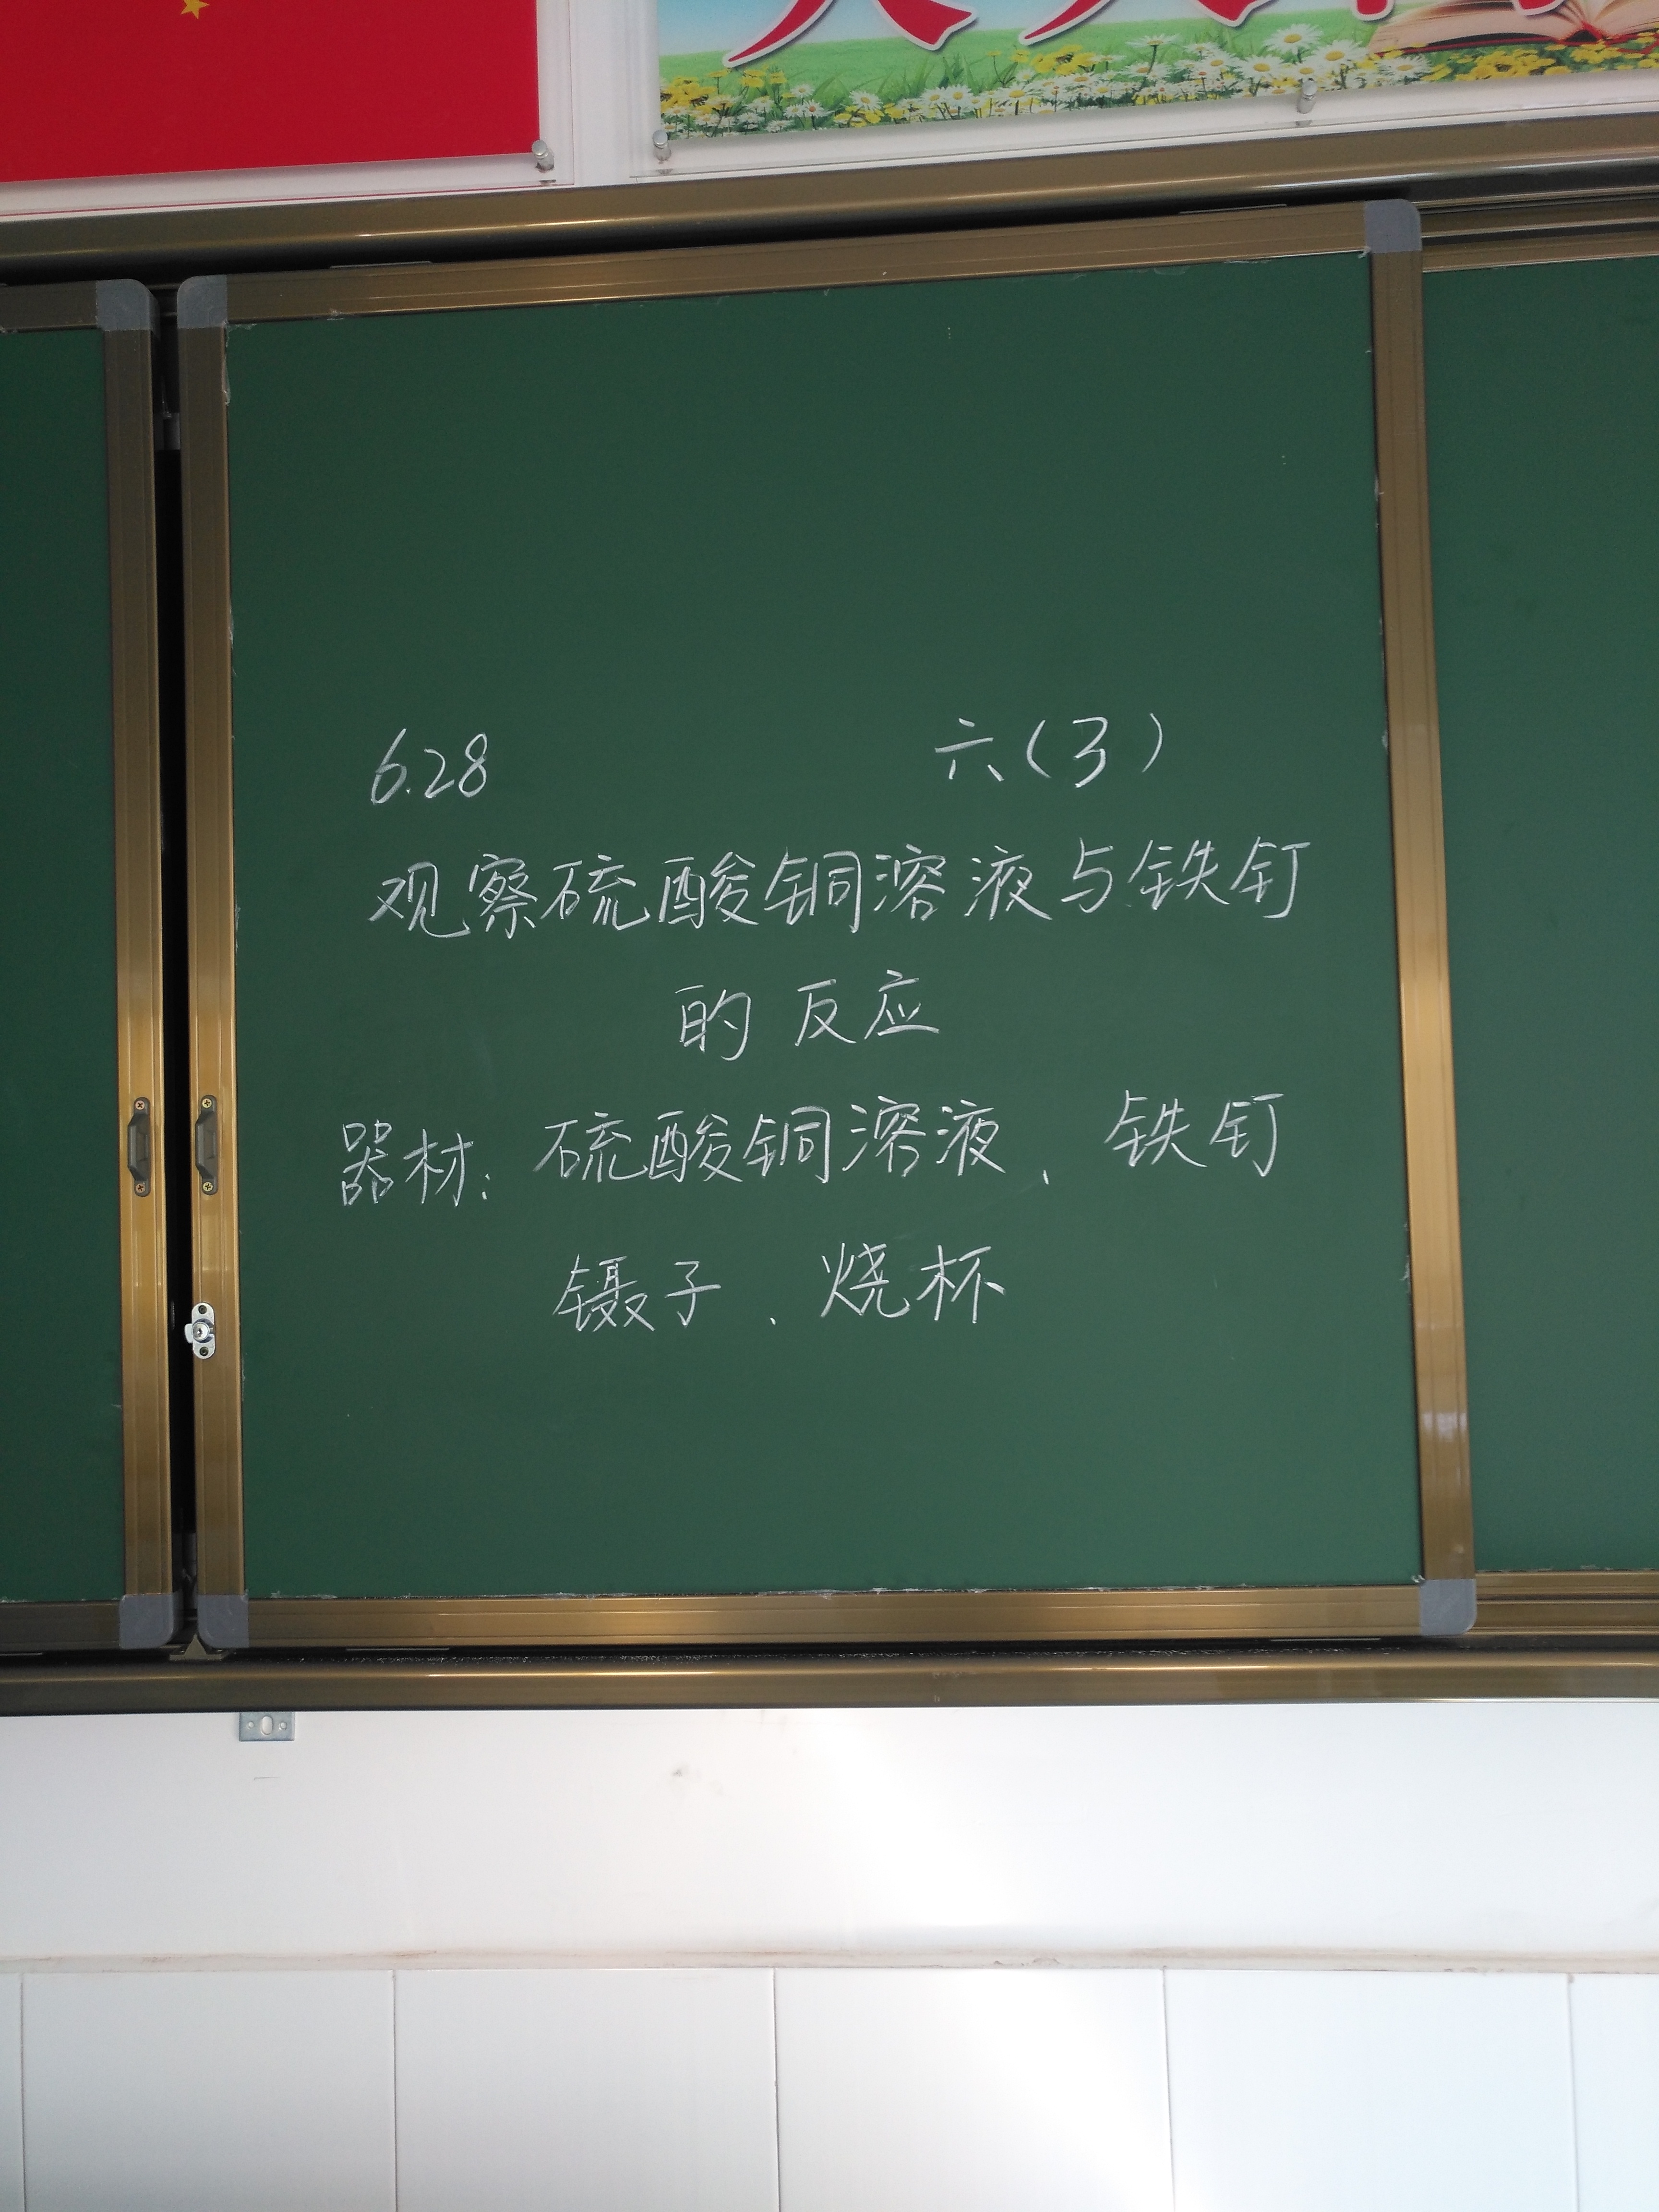 6.28 六(3)
观察硫酸铜溶液与铁钉
的反应
器材：硫酸铜溶液、铁钉
镊子、烧杯